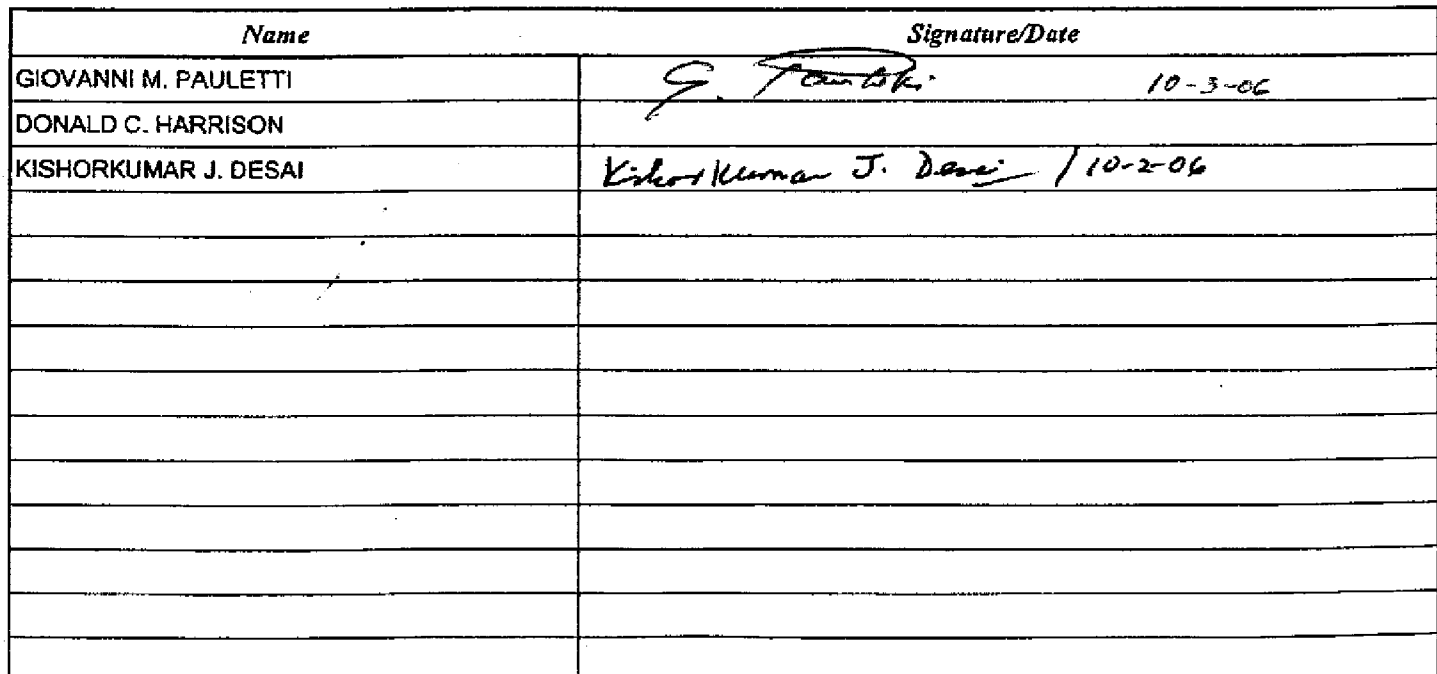 Name Signature/Date
GIOVANNI M. PAULETTI G. Pauletti 10-3-06
DONALD C. HARRISON
KISHORKUMAR J. DESAI Kishorkumar J. Desai / 10-2-06